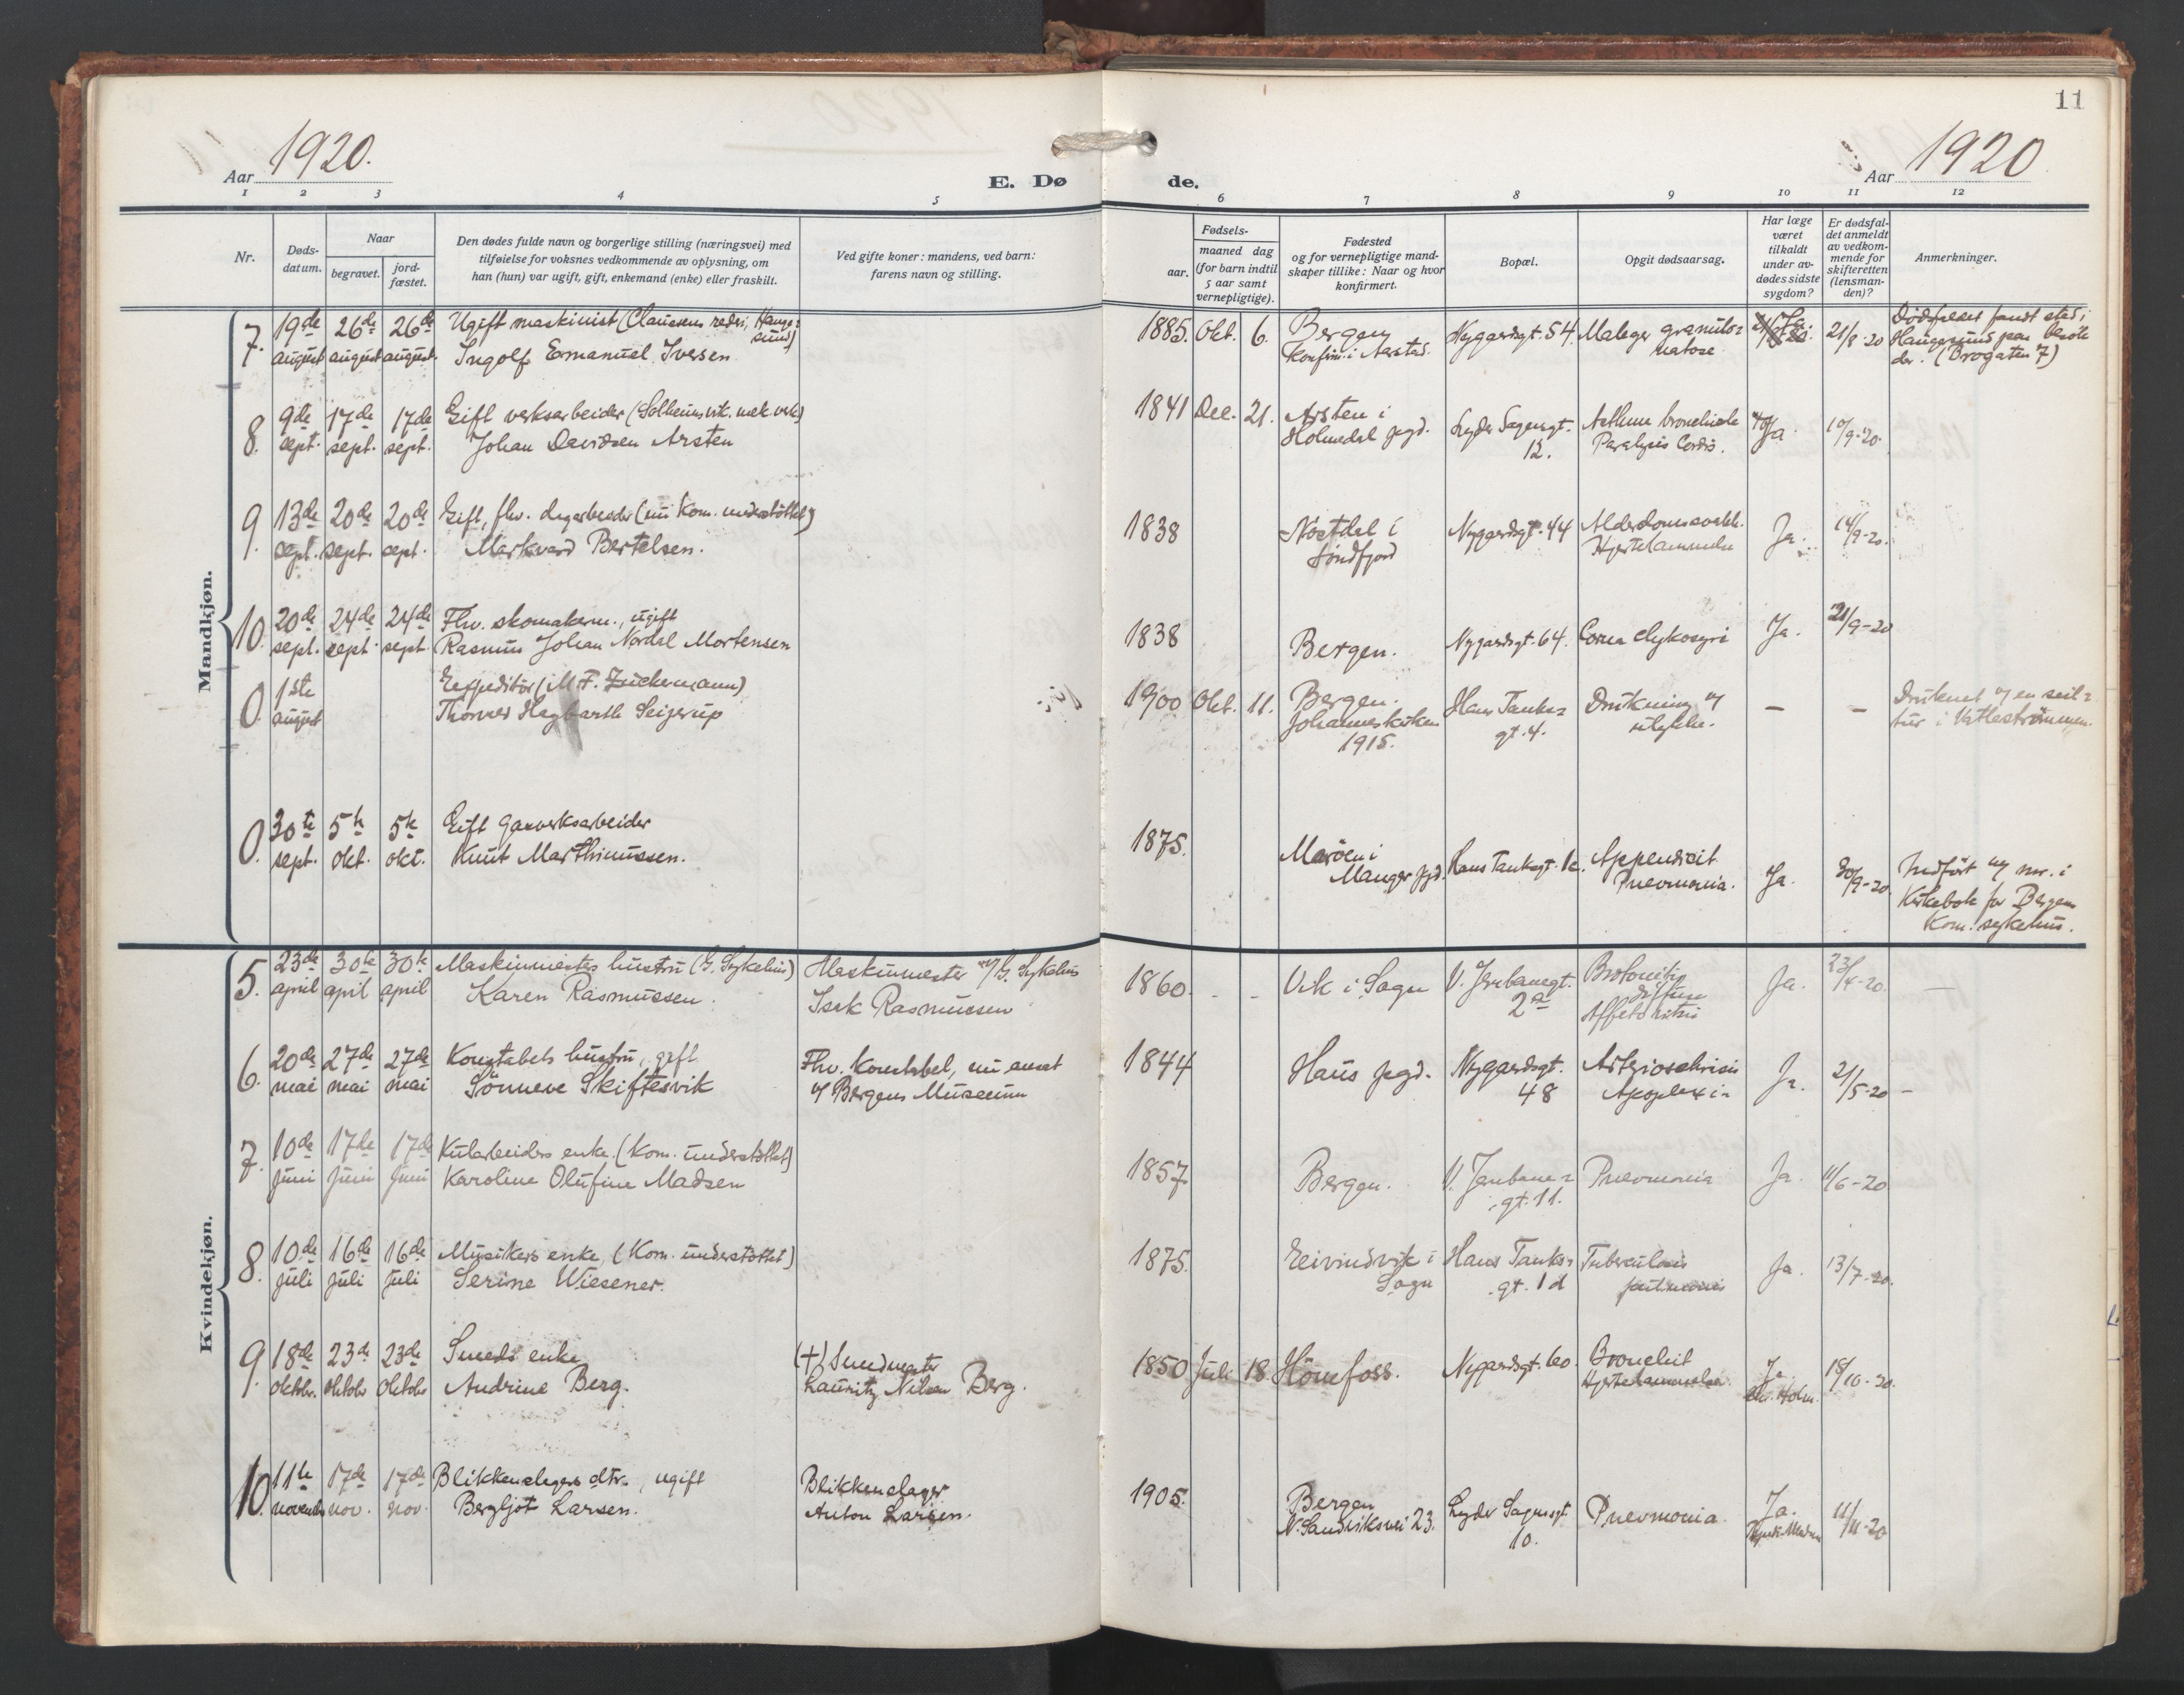 11
Aar 1920.
E. Døde.
Aar 1920
1 2 3 4 5 6 7 8 9 10 11 12
Nr.
Døds-
datum.
Naar
begravet.
jord-
fæstet.
Den dødes fulde navn og borgerlige stilling (næringsvei) med
tilføielse for voksnes vedkommende av oplysning, om
han (hun) var ugift, gift, enkemand (enke) eller fraskilt.
Ved gifte koner: mandens, ved barn:
farens navn og stilling.
Fødsels-
aar.
maaned dag
(for barn indtil
5 aar samt
vernepligtige).
Fødested
og for vernepligtige mand-
skaper tillike: Naar og hvor
konfirmert.
Bopæl.
Opgit dødsaarsag.
Har læge
været
tilkaldt
under av-
dødes sidste
sygdom?
Er dødsfal-
det anmeldt
av vedkom-
mende for
skifteretten
(lensman-
den)?
Anmerkninger.
Mandkjøn.
7. 19de august 26de august 26de august.
Ugift maskinist (Claussens rederi, Hauge-
sund)
Ingolf Emanuel Iversen
1885. Okt. 6.
Bergen
Konfirm. i Aarstad.
Nygardsgt. 54.
Ja.
21/8-20
Dødsfaldet fandt sted i
Haugesund
(Brogaten 7)
8. 9de sept. 17de sept. 17de sept.
Gift verksarbeider (Solheimsvik. mek. verk)
Johan Davidsen Arsten
1841 Dec. 21.
Arsten i
Holmedal pgd.
Lyder Sagensgt.
12.
Asthma bronchiale
Paralysis Cordis.
Ja.
10/9-20.
9. 13de sept. 20de sept. 20de sept.
Gift, fhv. dagarbeider (nu Kom. understøttet)
Markvard Bertelsen.
1838
Nostdal i
Søndfjord
Nygardsgt. 44
Alderdomssvakh.
Hjertelammelse
Ja.
14/9-20.
10. 20de sept. 24de sept. 24de sept
Fhv. skomakerm., ugift
Rasmus Johan Nordal Mortensen
1838
Bergen.
Nygardsgt. 64.
Ja.
21/9-20
0. 1ste august
Expeditør (M. F. Zuckermann)
Thorvald Hagbarth Seijerup
1900 Okt. 11.
Bergen.
Johanneskirken
1915.
Hans Tanks-
gt. 4.
Drukning v/
ulykke.
–
–
Druknet v/ en seil-
tur i Vatlestrømmen.
0. 30te sept. 5te okt. 5te okt.
Gift gasverksarbeider
Knut Marthinussen.
1875.
Marøen i
Manger pgd.
Hans Tanksgt. 1c.
Appendicit
Pneumonia.
Ja.
30/9-20
Indført u/ nr. i
Kirkebok for Bergens
Kom. sykehus.
Kvindekjøn.
5. 23de april 30te april 30te april
Maskinmesters hustru (G. Sykehus)
Karen Rasmussen.
Maskinmester v/ G. Sykehus
Isak Rasmussen
1860. - -
Vik i Sogn
V. Jernbanegt.
2a
Ja.
23/4-20.
–
6. 20de mai 27de mai 27de mai
Konstabels hustru, gift
Sönneve Skiftesvik
Fhv. Konstabel, nu ansat
v/ Bergens Museum
1844
Haus pgd.
Nygardsgt.
48
Apoplexia
Ja.
21/5-20 –
7. 10de juni 17de juni 17de juni
Kularbeiders enke. (Kom. understøttet)
Karoline Olufine Madsen
1857
Bergen.
V. Jernbane-
gt. 11.
Pneumonia
Ja.
11/6-20
8. 10de juli 16de juli 16de juli
Musikers enke (Kom. understøttet)
Serine Wiesener.
1875.
Eivindvik i
Sogn
Hans Tanks-
gt. 1d
Tuberculosis
pulmonis
Ja.
13/7-20.
9. 18de oktobr. 23de oktobr 23de oktobr
Smeds enke
Andrine Berg.
(+) Smedmester
Lauritz Nilsen Berg.
1850 Juli 18
Hönefoss.
Nygardsgt. 60.
Bronchit
Hjertelammelse.
Ja.
Chr. Holm.
18/10-20.
10. 11te november 17de nov. 17de nov.
Blikkenslagers dtr., ugift
Bergljot Larsen.
Blikkenslager
Anton Larsen.
1905.
Bergen
N. Sandviksvei 23.
Lyder Sagensgt.
10.
Pneumonia.
Ja.
11/11-20